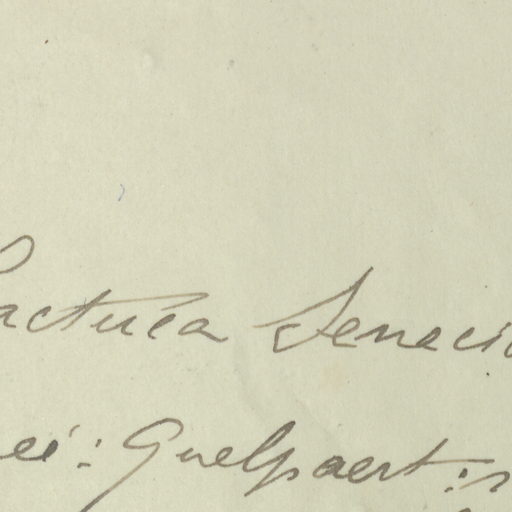 Lactuca Senecio
ei: Quelpaert: